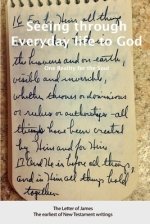 16 For in Him all things
Seeing through
Everyday life to God
the heavens and on earth,
One Reality for the Soul
visible and invisible,
whether thrones or dominions
or rulers or authorities - all
things have been created
by Him and for Him
17 And He is before all things,
and in Him all things hold
together.
The Letter of James
The earliest of New Testament writings